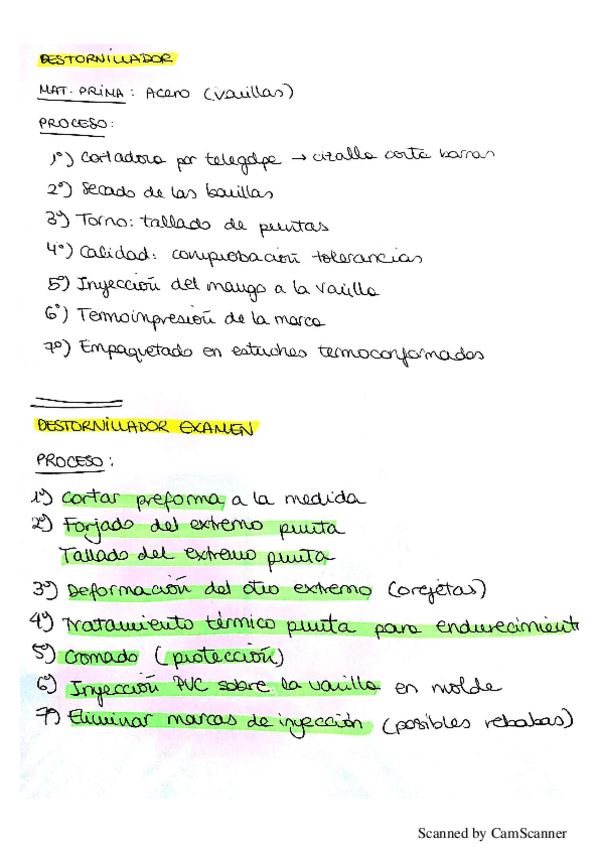 DESTORNILLADOR
MAT. PRIMA: Acero (varillas)
PROCESO:
1º) Cortadora por telegolpe → cizalla corta barras
2º) Secado de las barillas
3º) Torno: tallado de puntas
4º) Calidad: comprobación tolerancias
5º) Inyección del mango a la varilla
6º) Termoimpresión de la marca
7º) Empaquetado en estuches termoconformados
DESTORNILLADOR EXAMEN
PROCESO:
1º) Cortar preforma a la medida
2º) Forjado del extremo punta
Tallado del extremo punta
3º) Deformación del otro extremo (orejetas)
4º) Tratamiento térmico punta para endurecimient
5º) Cromado (protección)
6º) Inyección PVC sobre la varilla en molde
7º) Eliminar marcas de inyección (posibles rebabas)
Scanned by CamScanner